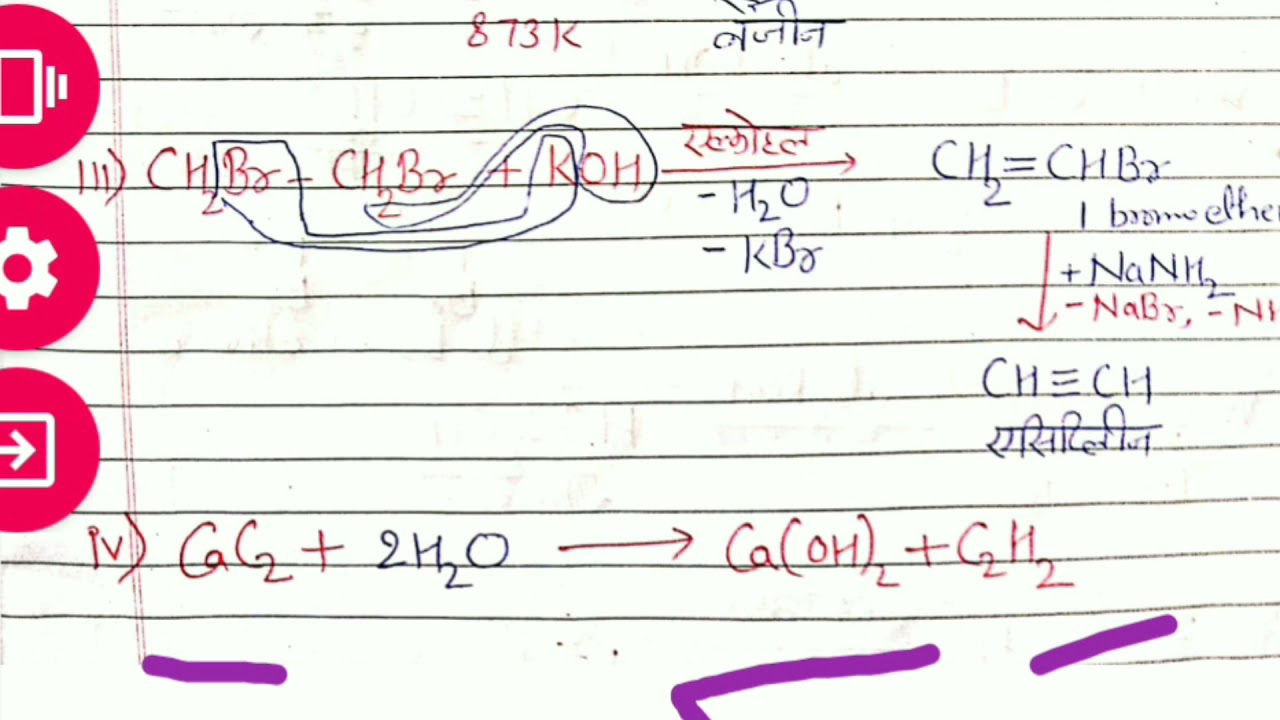 873K बेंजीन
III) CH₂Br - CH₂Br + KOH एल्कोहल → CH₂=CHBr
- H₂O
1 bromo ethe
- KBr
+ NaNH₂
- NaBr, - NH
CH≡CH
एसिटिलीन
iv) CaC₂ + 2H₂O → Ca(OH)₂ + C₂H₂